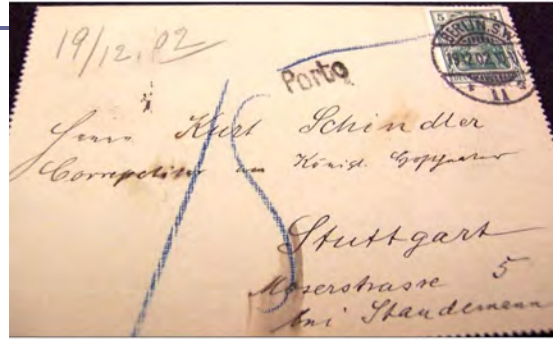 19/12.02
5 5
BERLIN S.W.
19.12.02
11
Porto
15
Herrn Kurt Schindler
Correpetitor am Königl. Hoftheater
Stuttgart
Moserstrasse 5
bei Staudemann